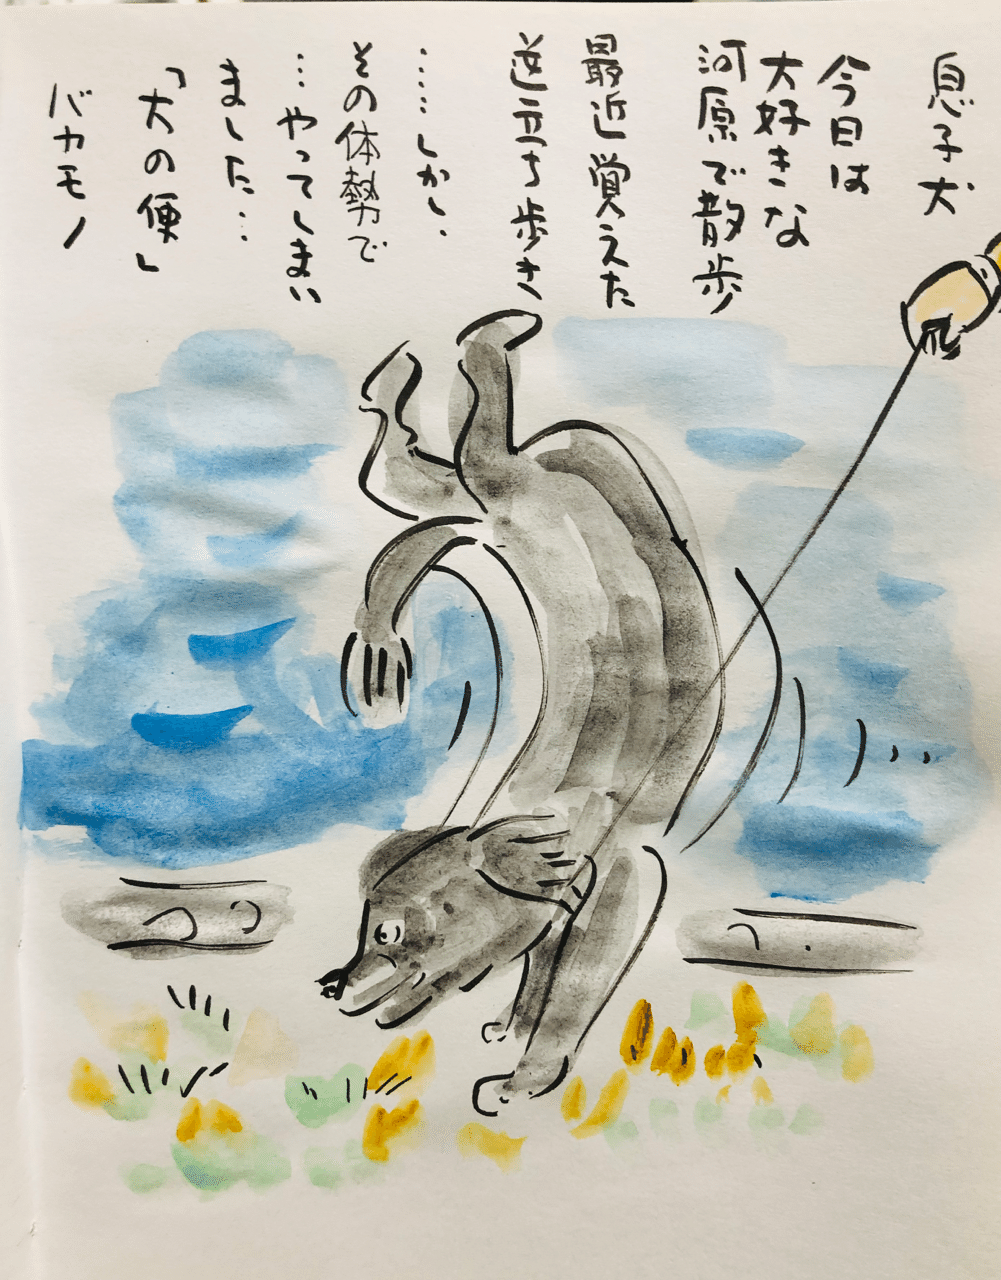 息子犬
今日は
大好きな
河原で散歩
最近覚えた
逆立ち歩き
……しかし、
その体勢で
…やってしまい
ました…
「大の便」
バカモノ